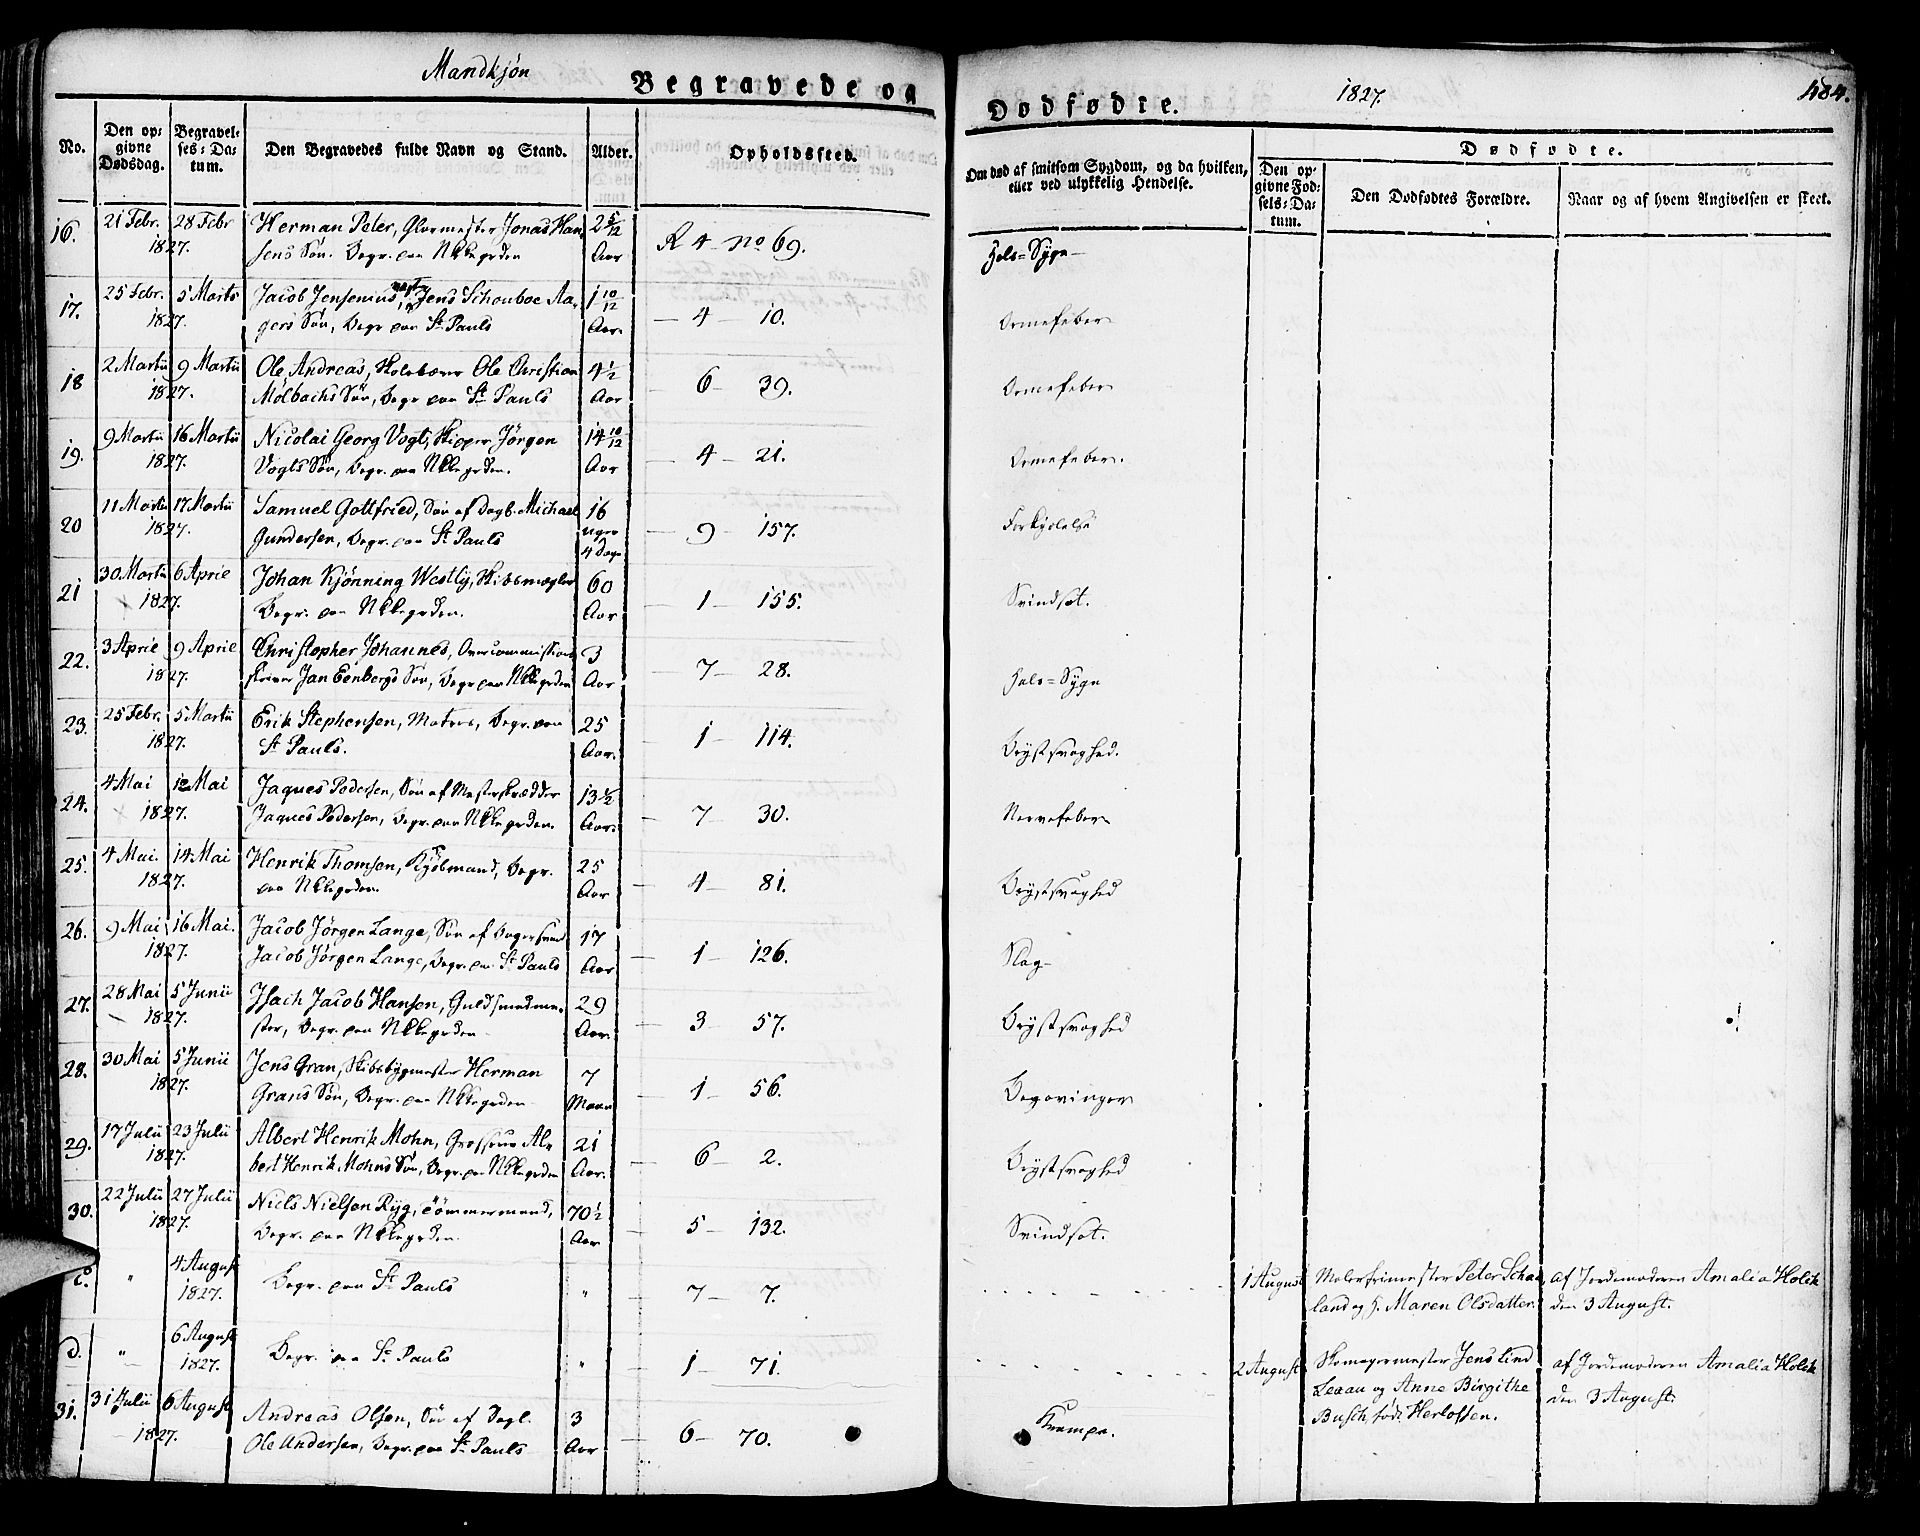 Mandkjøn
Begravede og
Dødfødte.
1827.
484.
No.
Den op-
givne
Dødsdag.
Begravel-
ses-Da-
tum.
Den Begravedes fulde Navn og Stand.
Alder.
Opholdssted.
Om død af smitsom Sygdom, og da hvilken,
eller ved ulykkelig Hendelse.
Dødfødte.
Den op-
givne Fød-
sels-Da-
tum.
Den Dødfødtes Forældre.
Naar og af hvem Angivelsen er skeet.
16. 21 Febr. 28 Febr Herman Peter, Glarmester Jonas Han- 2 5/12
1827. sens Søn. Begr. paa Nkkegrden Aar R 4 - No 69. Hals-Syge
17. 25 Febr. 5 Marts Jacob Jensenius, Jens Schouboe Aa- 1 10/12
1827. gers Søn, Begr paa St Pauls Aar. - 4 - 10. Ormefeber
18 2 Martii 9 Martii Ole Andreas, Ole Christian 4 1/2
1827. Mølbachs Søn, Begr paa St Pauls Aar - 6 - 39. Ormefeber
19. 9 Martii 16 Martii Nicolai Georg Vogt, Skipper Jørgen 14 10/12
1827. Vogts Søn, Begr. paa Nkkegrden. Aar - 4 - 21. Ormefeber.
20 11 Martii 17 Martii Samuel Gottfried, Søn af Dagl. Michael 16
1827. Gundersen, Begr. paa St Pauls uger - 9 - 157. Forkjølelse
4 Dage
21 30 Martii 6 Aprile Johan Kjønning Westly, Skibsmægler 60
1827. Begr. paa Nkkegrden. Aar - 1 - 155. Svindsot.
22. 3 Aprile 9 Aprile Christopher Johannes, Overcommissions 3
1827. skriver Jan Eenbergs Søn, Begr paa Nkkegrden Aar - 7 - 28. Hals-Syge
23. 25 Febr. 5 Martii Erik Stephensen, Matros, Begr. paa 25
1827. St Pauls. Aar. - 1 - 114. Brystsvaghed.
24. 4 Mai 12 Mai Jaques Pedersen, Søn af Mesterskrædder 13 1/2
1827. Jaques Pedersen, Begr. paa Nkkegrden. Aar. - 7 - 30. Nervefeber
25. 4 Mai. 14 Mai Henrik Thomsen, Kjøbmand, Begr. 25
1827. paa Nkkegrden. Aar - 4 - 81. Brystsvaghed
26. 9 Mai 16 Mai. Jacob Jørgen Lange, Søn af Bagersvend 17
1827. Jacob Jørgen Lange, Begr. paa St Pauls Aar - 1 - 126. Slag
27. 28 Mai 5 Junii Isach Jacob Hansen, Guldsmedme- 29
1827. ster, Begr. paa Nkkegrden Aar. - 3 - 57. Brystsvaghed
28. 30 Mai 5 Junii Jens Gran, Skibsbygmester Herman 7
1827. Grans Søn, Begr. paa Nkkegrden Maan - 1 - 56. Begavinger
29. 17 Julii 23 Julii Albert Henrik Mohn, Grosserer Al- 21
1827. bert Henrik Mohns Søn, Begr. paa Nkkegrden Aar. - 6 - 2. Brystsvaghed
30. 22 Julii 27 Julii Niels Nielsen Ryg, Tømmermand, 70 1/2
1827. Begr. paa Nkkegrden. Aar - 5 - 132. Svindsot.
c. " 4 August Begr. paa St Pauls " - 7 - 7. 1 August Malerfrimester Peter Scha- af Jordemoderen Amalia Holck
1827. land og h. Maren Olsdatter. den 3 August.
d. " 6 August Begr. paa St Pauls " - 1 - 71. 2 August Skomagermester Jens Lind af Jordemoderen Amalia Holck
1827. Leaau og Anne Birgithe den 3 August.
Busch, født Herlofsen.
31. 31 Julii 6 August Andreas Olsen, Søn af Dagl. 3
1827. Ole Andersen, Begr. paa St Pauls Aar - 6 - 70. Krampe.